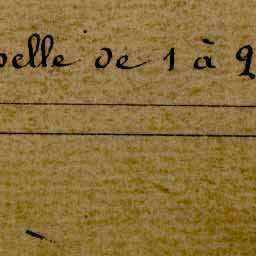 pelle de 1 à 9